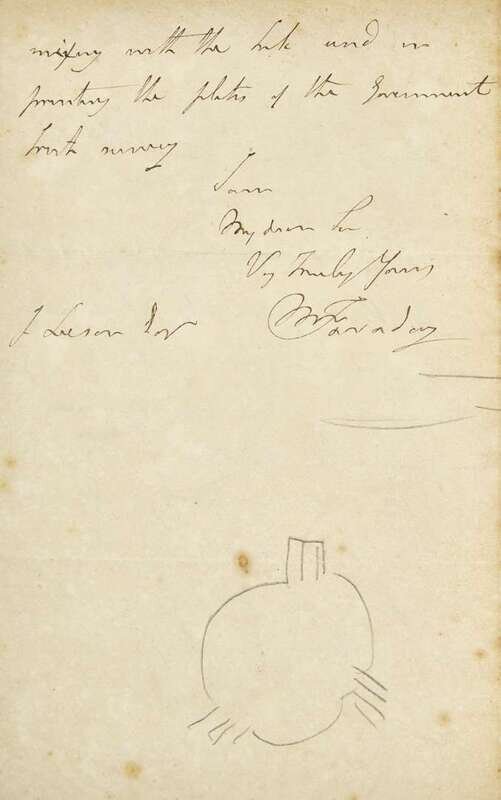 mixing with the Ink and in
printing the plates of the Government
Irish survey
I am
My dear Sir
Very Truly Yours
M Faraday
J Leeson Esqr